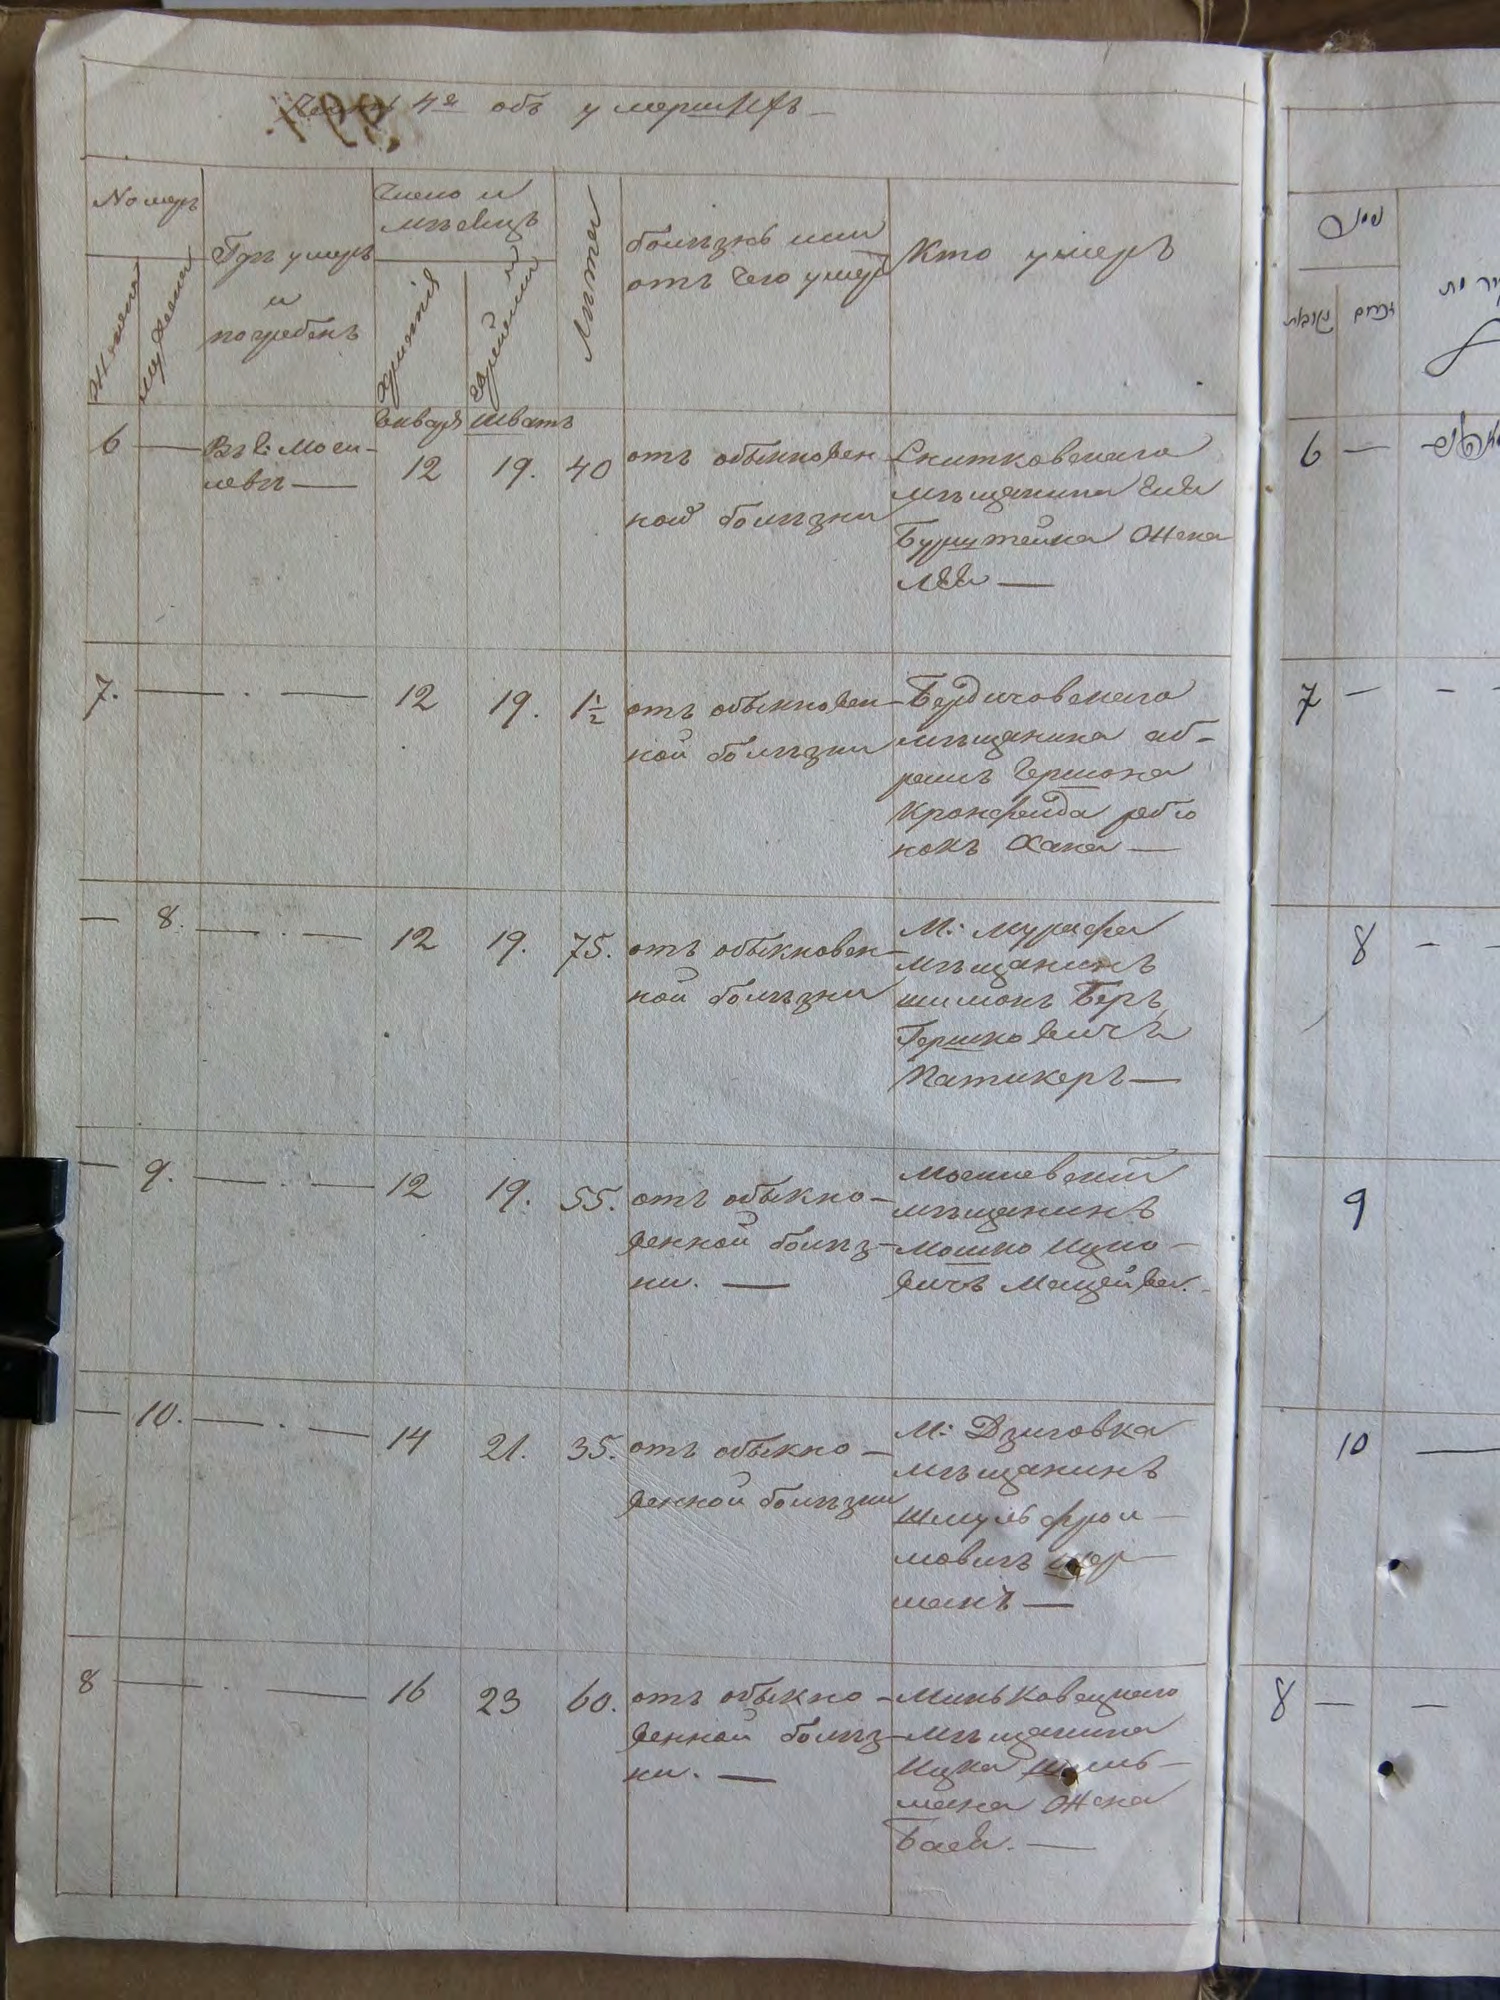 Часть 4я объ умершихъ
Номеръ
Женска
мужеска
Гдъ умеръ
и
погребенъ
Число и
мъсяцъ
Христiя
Еврейски
Лъта
болъзнь или
отъ чего умеръ
Кто умеръ
Январъ Шватъ
6 — Въ г: Моги-
левъ — 12 19. 40 отъ обыкновен
ной болъзни
Снитковскаго
мъщанина
Бурштейна жена
Лея —
7. — . — 12 19. 1½ отъ обыкновен-
ной болъзни
Бердичовскаго
мъщанина аб-
рамъ Гершона
Кронфелда ребіо
нокъ Хана —
— 8. — . — 12 19. 75. отъ обыкновен-
ной болъзни
М: Мурафа
мъщанинъ
шимонъ Беръ
Гершковичъ
Патикеръ —
— 9. — . — 12 19. 55. отъ обыкно-
венной болъз-
ни. —
Могилевский
мъщанинъ
Мошко Ицко-
вичъ
— 10. — . — 14 21. 35. отъ обыкно-
венной болъзни
М: Дзиговка
мъщанинъ
Шмуль фрои-
мовичъ шер-
манъ —
8 — . — 16 23 60. отъ обыкно-
венной болъз-
ни. —
Миньковецкаго
мъщанина
Ицка
мана жена
Бася. —
נקבות
זכרים
6 —
7 — —
8 —
9
10 —
8 — —